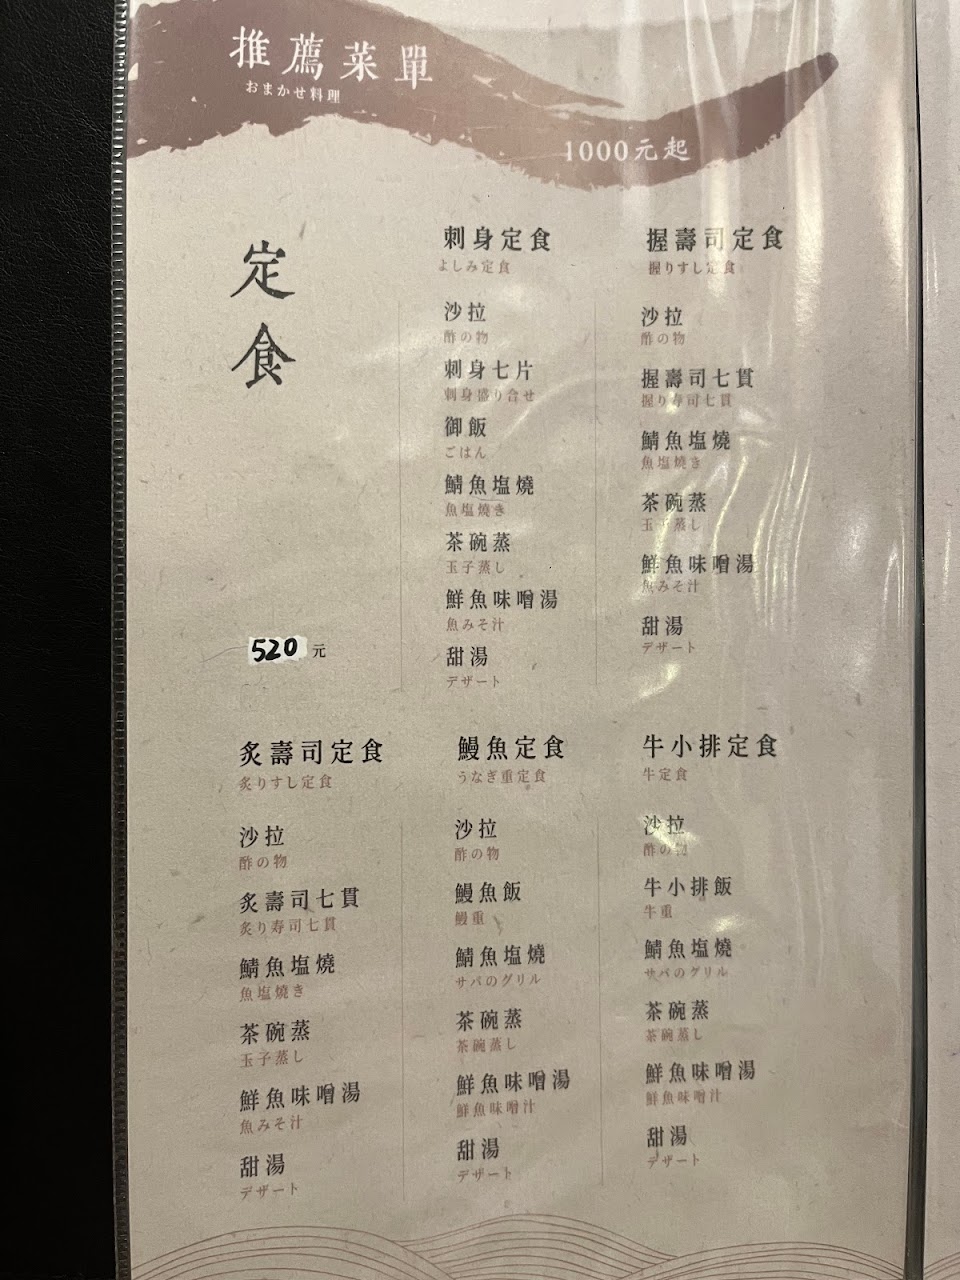 推薦菜單
おまかせ料理
1000元起
定食
520元
刺身定食
よしみ定食
沙拉
酢の物
刺身七片
刺身盛り合せ
御飯
ごはん
鯖魚塩燒
魚塩燒き
茶碗蒸
玉子蒸し
鮮魚味噌湯
魚みそ汁
甜湯
デザート
握壽司定食
握りすし定食
沙拉
酢の物
握壽司七貫
握り寿司七貫
鯖魚塩燒
魚塩燒き
茶碗蒸
玉子蒸し
鮮魚味噌湯
魚みそ汁
甜湯
デザート
炙壽司定食
炙りすし定食
沙拉
酢の物
炙壽司七貫
炙り寿司七貫
鯖魚塩燒
魚塩燒き
茶碗蒸
玉子蒸し
鮮魚味噌湯
魚みそ汁
甜湯
デザート
鰻魚定食
うなぎ重定食
沙拉
酢の物
鰻魚飯
鰻重
鯖魚塩燒
サバのグリル
茶碗蒸
茶碗蒸し
鮮魚味噌湯
鮮魚味噌汁
甜湯
デザート
牛小排定食
牛定食
沙拉
酢の物
牛小排飯
牛重
鯖魚塩燒
サバのグリル
茶碗蒸
茶碗蒸し
鮮魚味噌湯
鮮魚味噌汁
甜湯
デザート